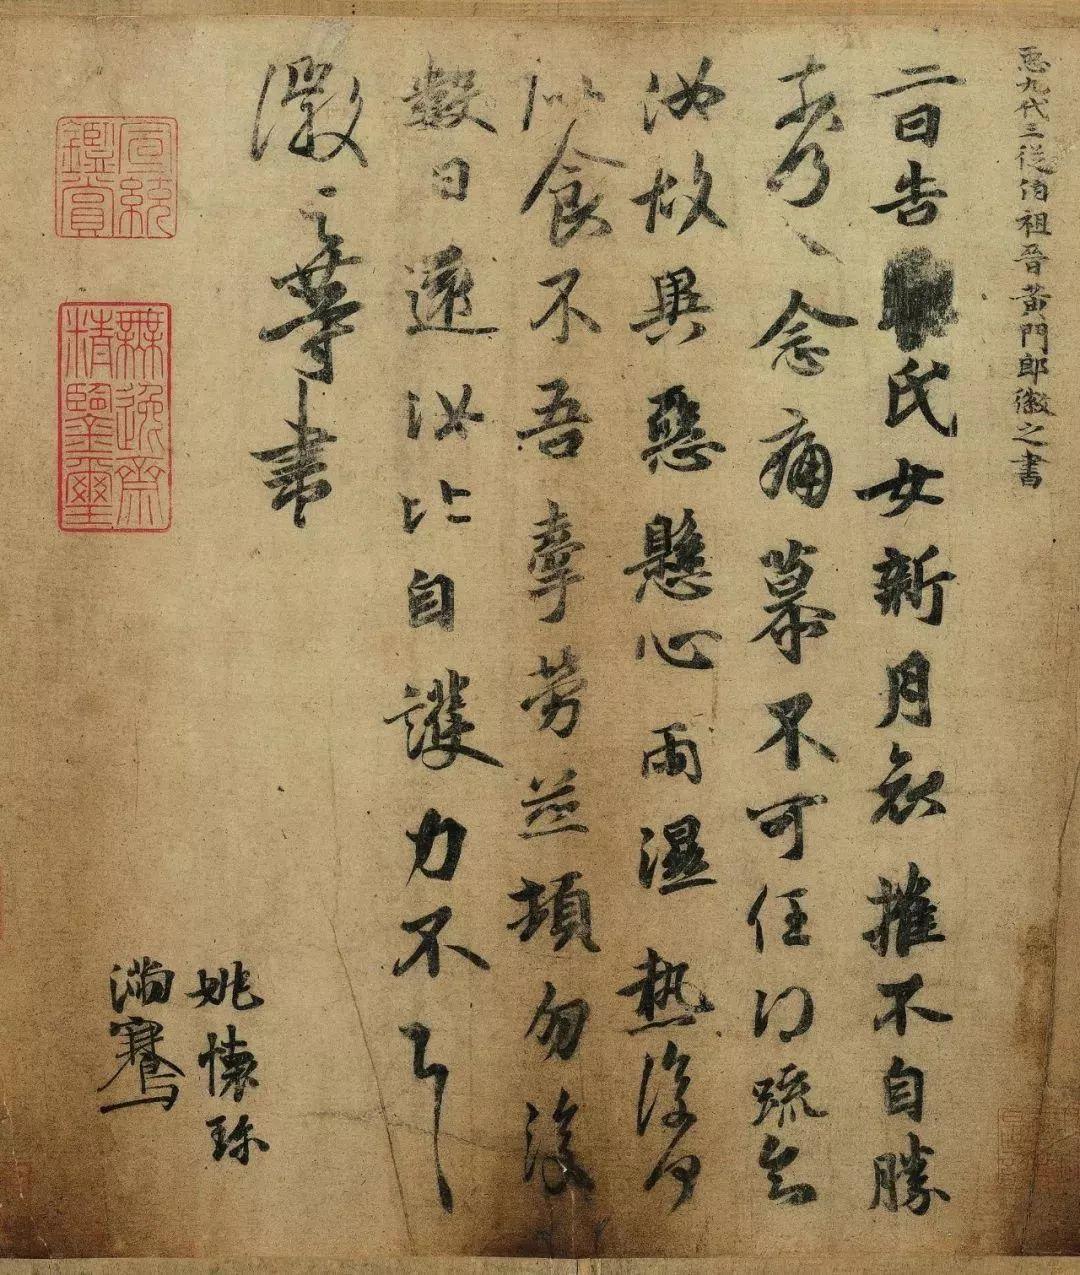 𢘑九代三從伯祖晉黃門郎徽之書
二日告氏女新月哀摧不自勝
奈何〻念痛慕不可任得疏知
汝故異惡懸心雨濕熱復何
似食不吾牽勞並頓勿復
數日還汝比自護力不具
徽之等書
姚懷珍
滿騫
宣統鑑賞
無逸齋精鑒璽